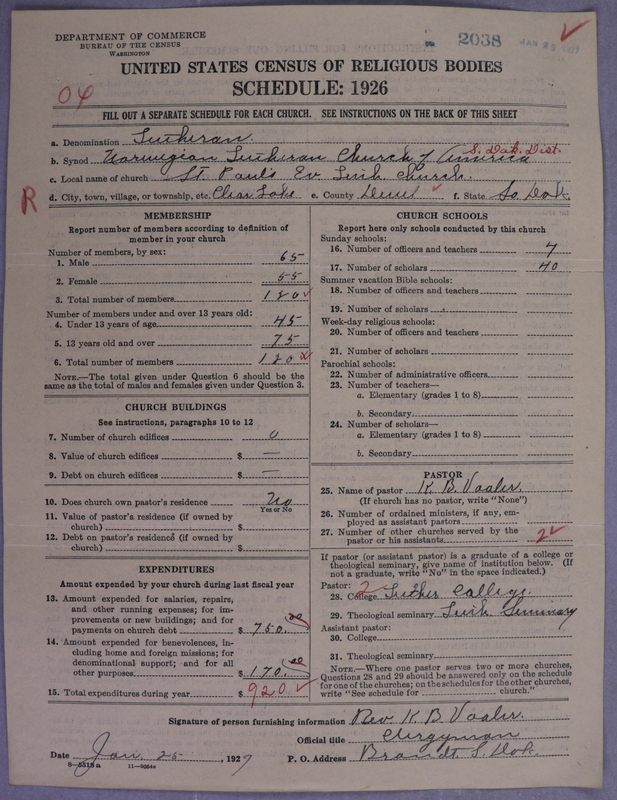 DEPARTMENT OF COMMERCE
BUREAU OF THE CENSUS
WASHINGTON
2038
UNITED STATES CENSUS OF RELIGIOUS BODIES
SCHEDULE: 1926
04
FILL OUT A SEPARATE SCHEDULE FOR EACH CHURCH. SEE INSTRUCTIONS ON THE BACK OF THIS SHEET
a. Denomination Lutheran
S. Dak. Dist.
b. Synod Norwegian Lutheran Church of America
c. Local name of church St. Paul's Ev Luth Church.
R
d. City, town, village, or township, etc. Clear Lake e. County Deuel f. State So. Dak.
MEMBERSHIP
Report number of members according to definition of
member in your church
Number of members, by sex:
1. Male 65
2. Female 55
3. Total number of members 120
Number of members under and over 13 years old:
4. Under 13 years of age 45
5. 13 years old and over 75
6. Total number of members 120
NOTE.—The total given under Question 6 should be the
same as the total of males and females given under Question 3.
CHURCH BUILDINGS
See instructions, paragraphs 10 to 12
7. Number of church edifices 0
8. Value of church edifices $ —
9. Debt on church edifices $ —
10. Does church own pastor's residence No
Yes or No
11. Value of pastor's residence (if owned by
church) $
12. Debt on pastor's residence (if owned by
church) $
EXPENDITURES
Amount expended by your church during last fiscal year
13. Amount expended for salaries, repairs,
and other running expenses; for im-
provements or new buildings; and for
payments on church debt $ 750.00
14. Amount expended for benevolences, in-
cluding home and foreign missions; for
denominational support; and for all
other purposes $ 170.00
15. Total expenditures during year $ 920.
CHURCH SCHOOLS
Report here only schools conducted by this church
Sunday schools:
16. Number of officers and teachers 7
17. Number of scholars 40
Summer vacation Bible schools:
18. Number of officers and teachers
19. Number of scholars
Week-day religious schools:
20. Number of officers and teachers
21. Number of scholars
Parochial schools:
22. Number of administrative officers
23. Number of teachers—
a. Elementary (grades 1 to 8)
b. Secondary
24. Number of scholars—
a. Elementary (grades 1 to 8)
b. Secondary
PASTOR
25. Name of pastor K. B. Vaaler.
(If church has no pastor, write "None")
26. Number of ordained ministers, if any, em-
ployed as assistant pastors
27. Number of other churches served by the
pastor or his assistants 2
If pastor (or assistant pastor) is a graduate of a college or
theological seminary, give name of institution below. (If
not a graduate, write "No" in the space indicated.)
Pastor: 2
28. College Luther College.
29. Theological seminary Luth Seminary
Assistant pastor:
30. College
31. Theological seminary
NOTE.—Where one pastor serves two or more churches,
Questions 28 and 29 should be answered only on the schedule
for one of the churches; on the schedules for the other churches,
write "See schedule for church."
Signature of person furnishing information Rev. K. B. Vaaler.
Official title Clergyman
Date Jan. 25, 1927 P. O. Address Brandt S. Dak.